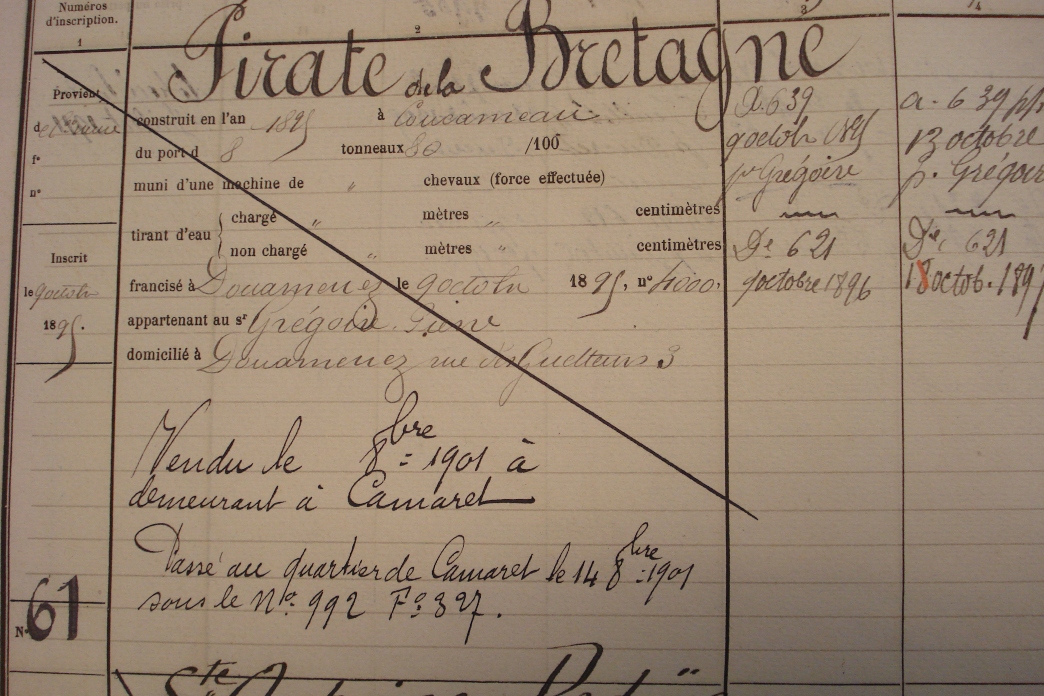 Numéros
d'inscription.
1
2
3
4
Pirate de la Bretagne
Provient
d
f°
n°
construit en l'an 1895 à Concarneau
du port d 8 tonneaux 80 /100
muni d'une machine de " chevaux (force effectuée)
tirant d'eau
chargé " mètres " centimètres
non chargé " mètres " centimètres
francisé à Douarnenez le 9 octobre 1895, n° 4000.
appartenant au sr Grégoire Pierre
domicilié à Douarnenez rue 3
Inscrit
le 9 octobre
1895.
639
9 octobre 1895
pr Grégoire
De 621
9 octobre 1896
a. 639
13 octobre
p. Grégoir
De 621
octob. 189
Vendu le 8bre = 1901 à
demeurant à Camaret
Passé au quartier de Camaret le 14 8bre = 1901
sous le No. 992 Fo. 327.
N° 61
Ste